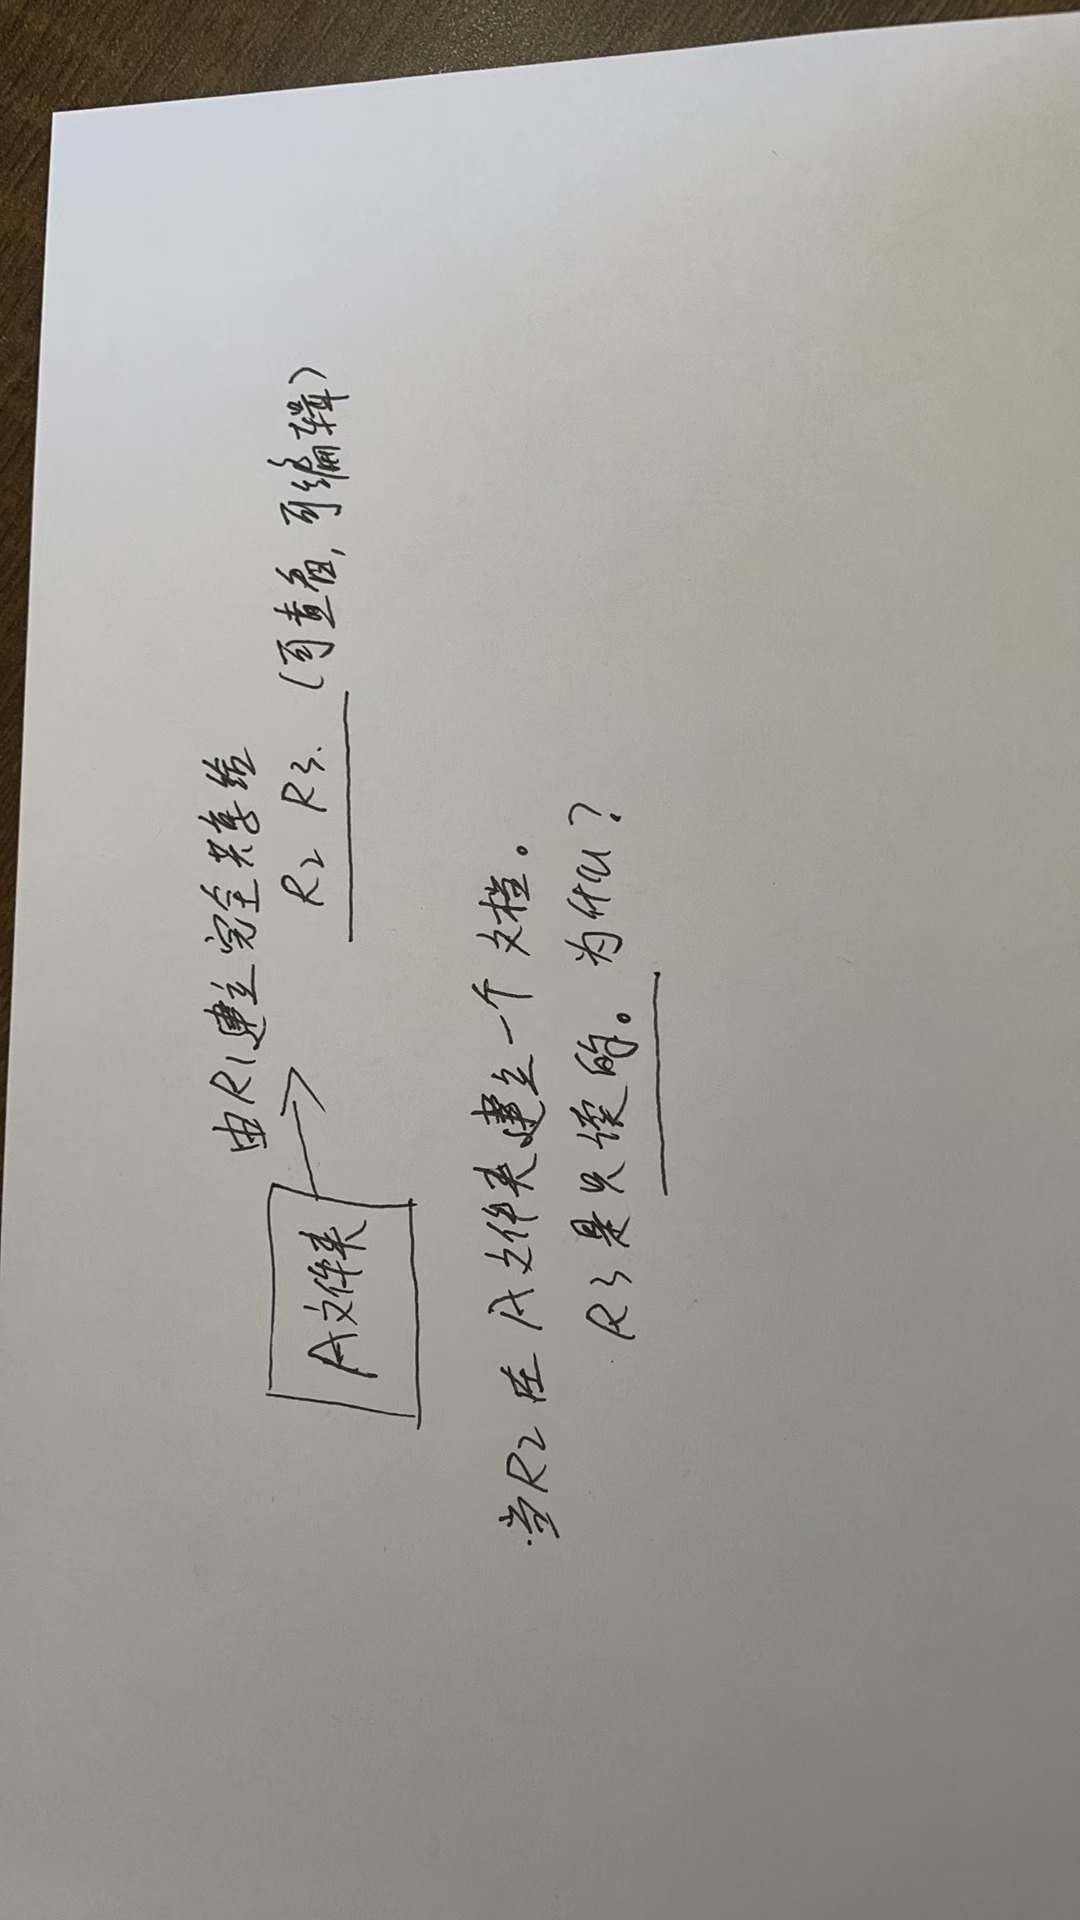 由R1建立完全共享给
A文件夹
R2 R3. (可查看, 可编辑)
当R2在A文件夹建立一个文档。
R3是只读的。为什么?